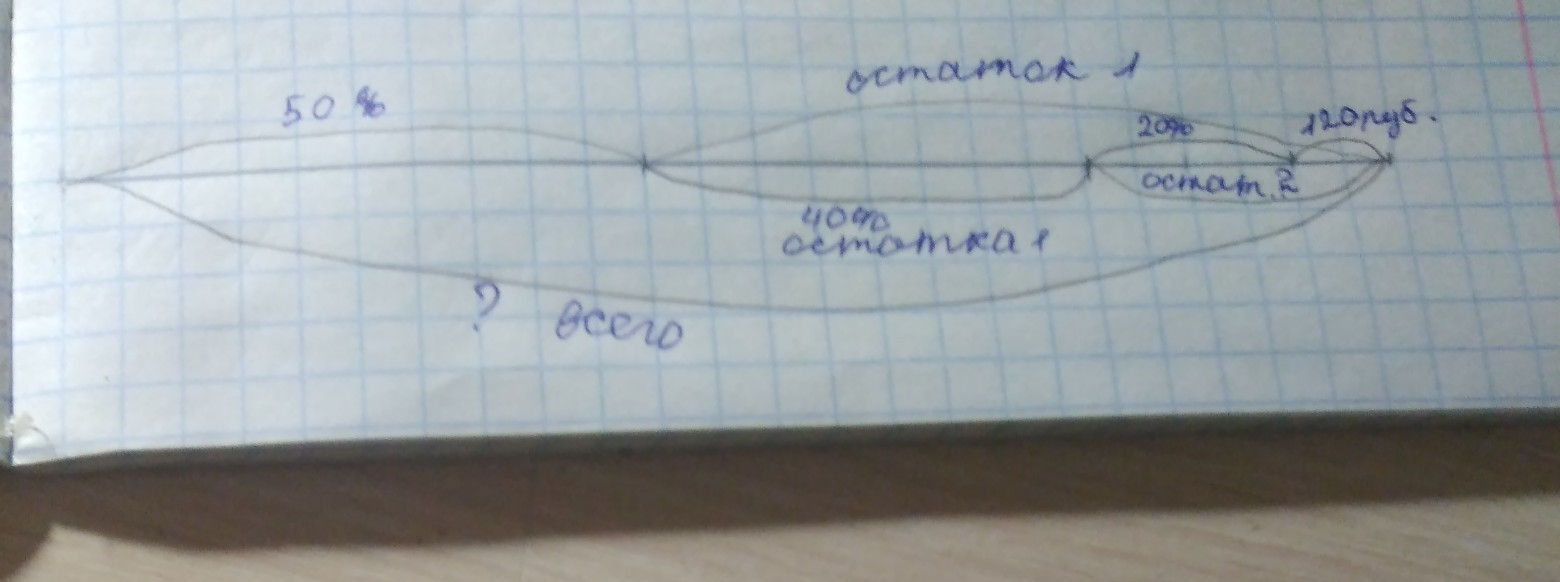 остаток 1
50 %
20% 120 руб.
остат. 2
40%
остатка 1
? всего